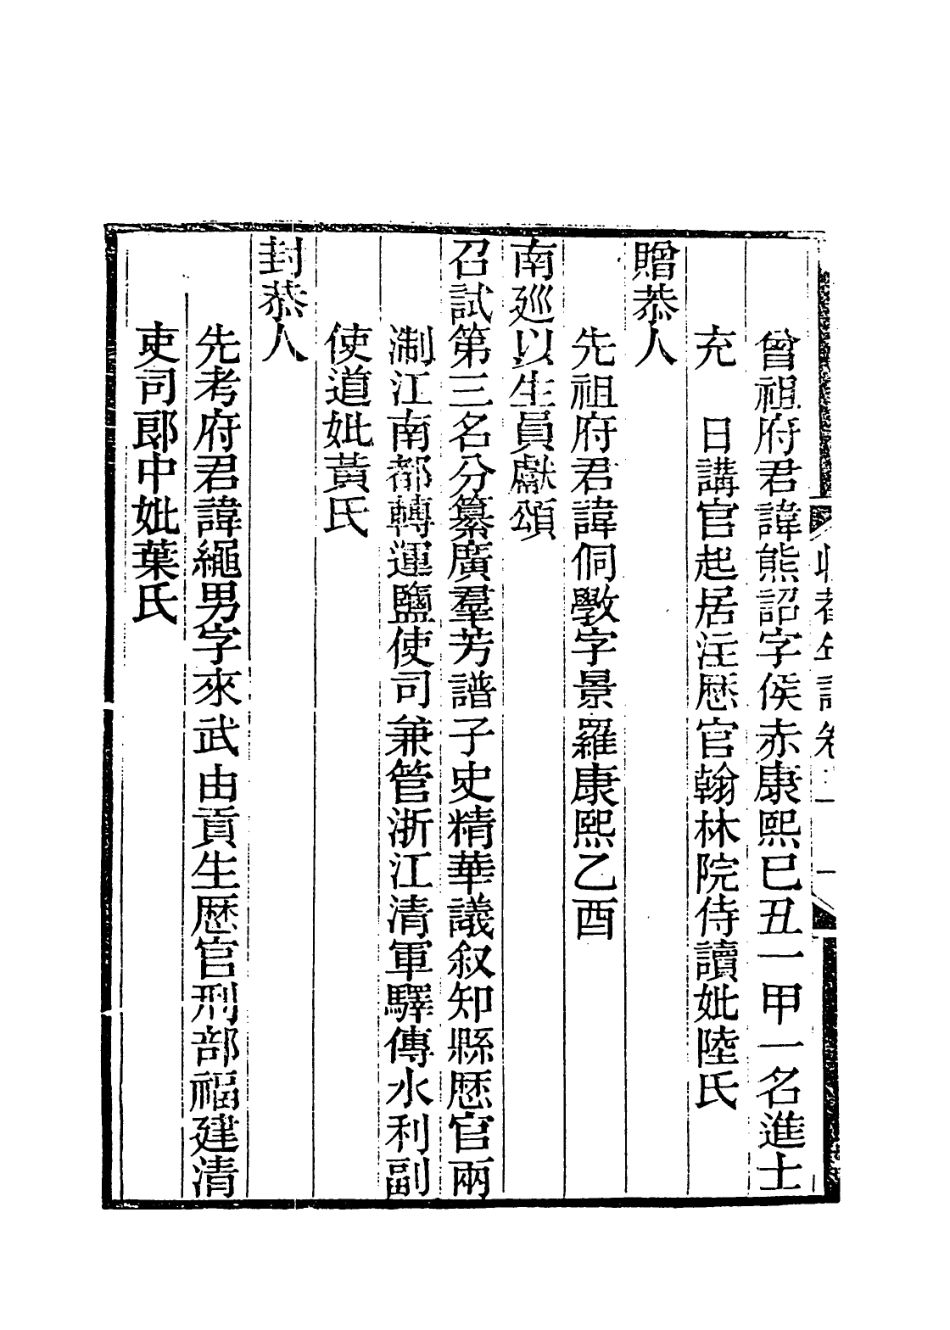 曾祖府君諱熊詔字侯赤康熙己丑一甲一名進士
充　日講官起居注歷官翰林院侍讀妣陸氏
贈恭人
先祖府君諱侗斅字景羅康熙乙酉
南廵以生員獻頌
召試第三名分纂廣羣芳譜子史精華議叙知縣歷官兩
淛江南都轉運鹽使司兼管浙江清軍驛傳水利副
使道妣黃氏
封恭人
先考府君諱繩男字來武由貢生歷官刑部福建清
吏司郎中妣葉氏